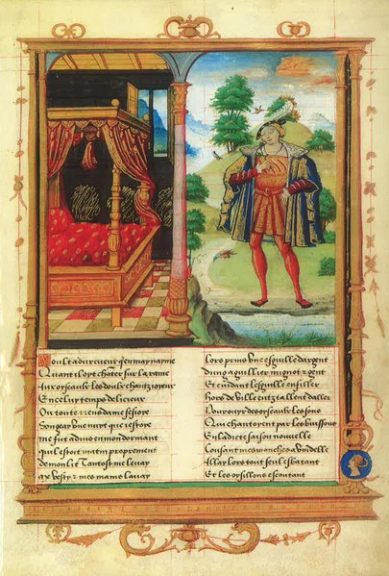 Moult a dur cueur qen may nayme
Quant il ot chãter sur la rame
Aux oyseaulx les doulx chantz
En celuy temps delicieux
Ou toute riẽ dame
Songeay vne nuyt que iestoye
Me fut aduis en mon dormant
quil estoit matin proprement
De mon lit Tantost me leuay
vesty z mes mains lauay
Lors prins vne esguille dargent
Dung aguillier mignot z gent
Et cuidant lesguille enfiller
Hors de ville euz tallent daller
Pour ouyr des oyseaulx les sons
Qui chantoyent par les buissons
En ladicte saison nouuelle
Cousant mes manches a videlle
Allay lors tout seul esbatant
Et les oysillons escoutant